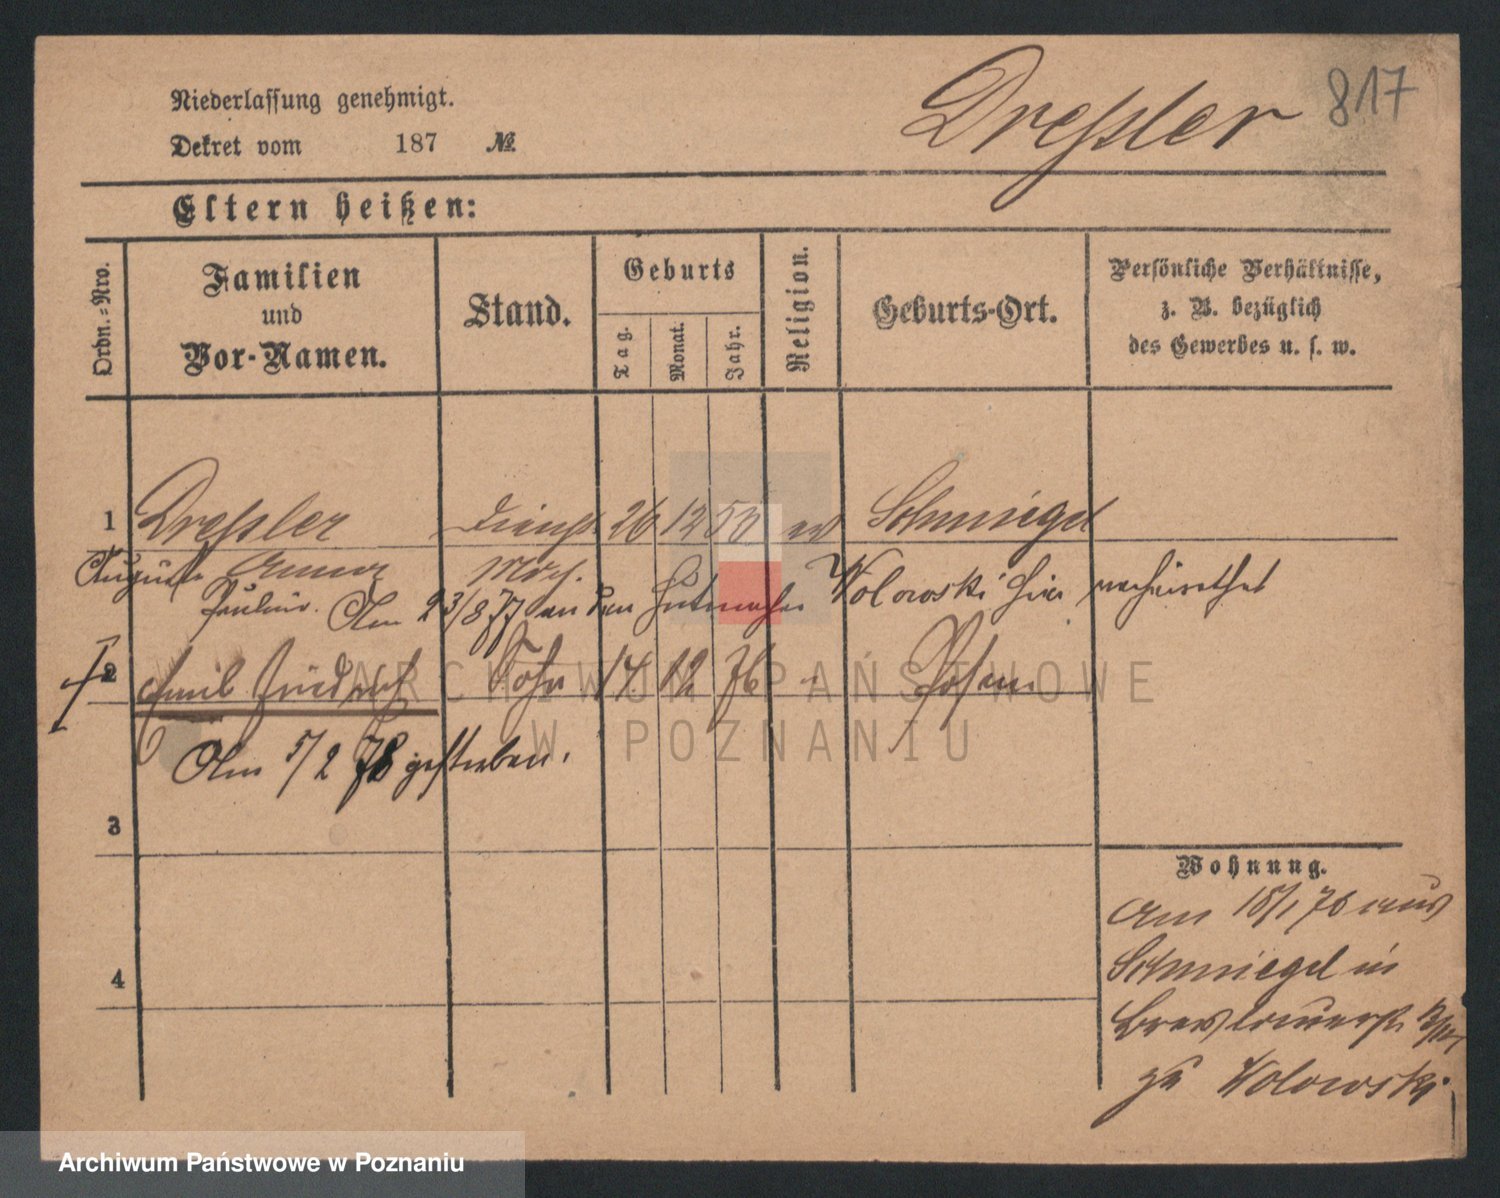 817
Dreßler
Niederlassung genehmigt.
Dekret vom 187 №
Eltern heißen:
Ordn.=Nro.
Familien
und
Vor-Namen.
Stand.
Geburts
Tag.
Monat.
Jahr.
Religion.
Geburts-Ort.
Persönliche Verhältnisse,
z. B. bezüglich
des Gewerbes u. s. w.
1 Dreßler Dienst 26 12 53 ev Schmiegel
Auguste Anna Mdch.
Pauline. Am 23/8 77 an den Hutmacher Wolowski hier verheirathet
2 Emil Friedrich Sohn 14. 12 76 Posen
Am 5/2 78 gestorben.
3
4
Wohnung.
Am 18/1 76 aus
Schmiegel in
Breslauerstr.
zu Wolowski.
ARCHIWUM PAŃSTWOWE
W POZNANIU
Archiwum Państwowe w Poznaniu